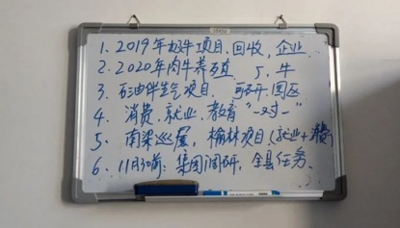 1. 2019年奶牛项目、回收、企业
2. 2020年肉牛养殖 5. 牛
3. 石油伴生气项目、可研、园区
4. 消费、就业、教育 "一对一"
5. 南梁巡展, 榆林项目(就业+消费)
6. 11月30前: 集团调研, 全县任务.